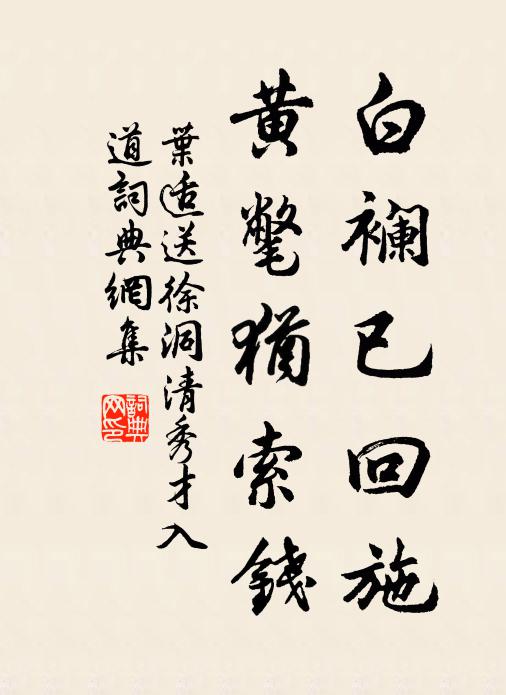 白襴已回施
黃氅猶索錢
葉适送徐洞清秀才入
道詞典網集
詞典網印